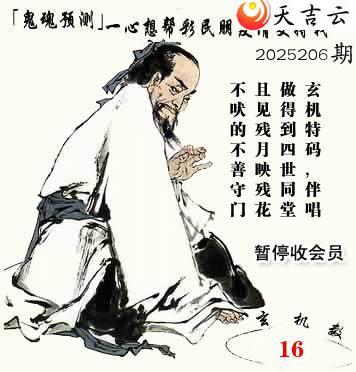 「鬼魂预测」一心想帮彩民朋
天吉云
2025206期
玄机特码，伴唱
做得到四世同堂
且见残月映残花
不吠的不善守门
暂停收会员
玄机数
16